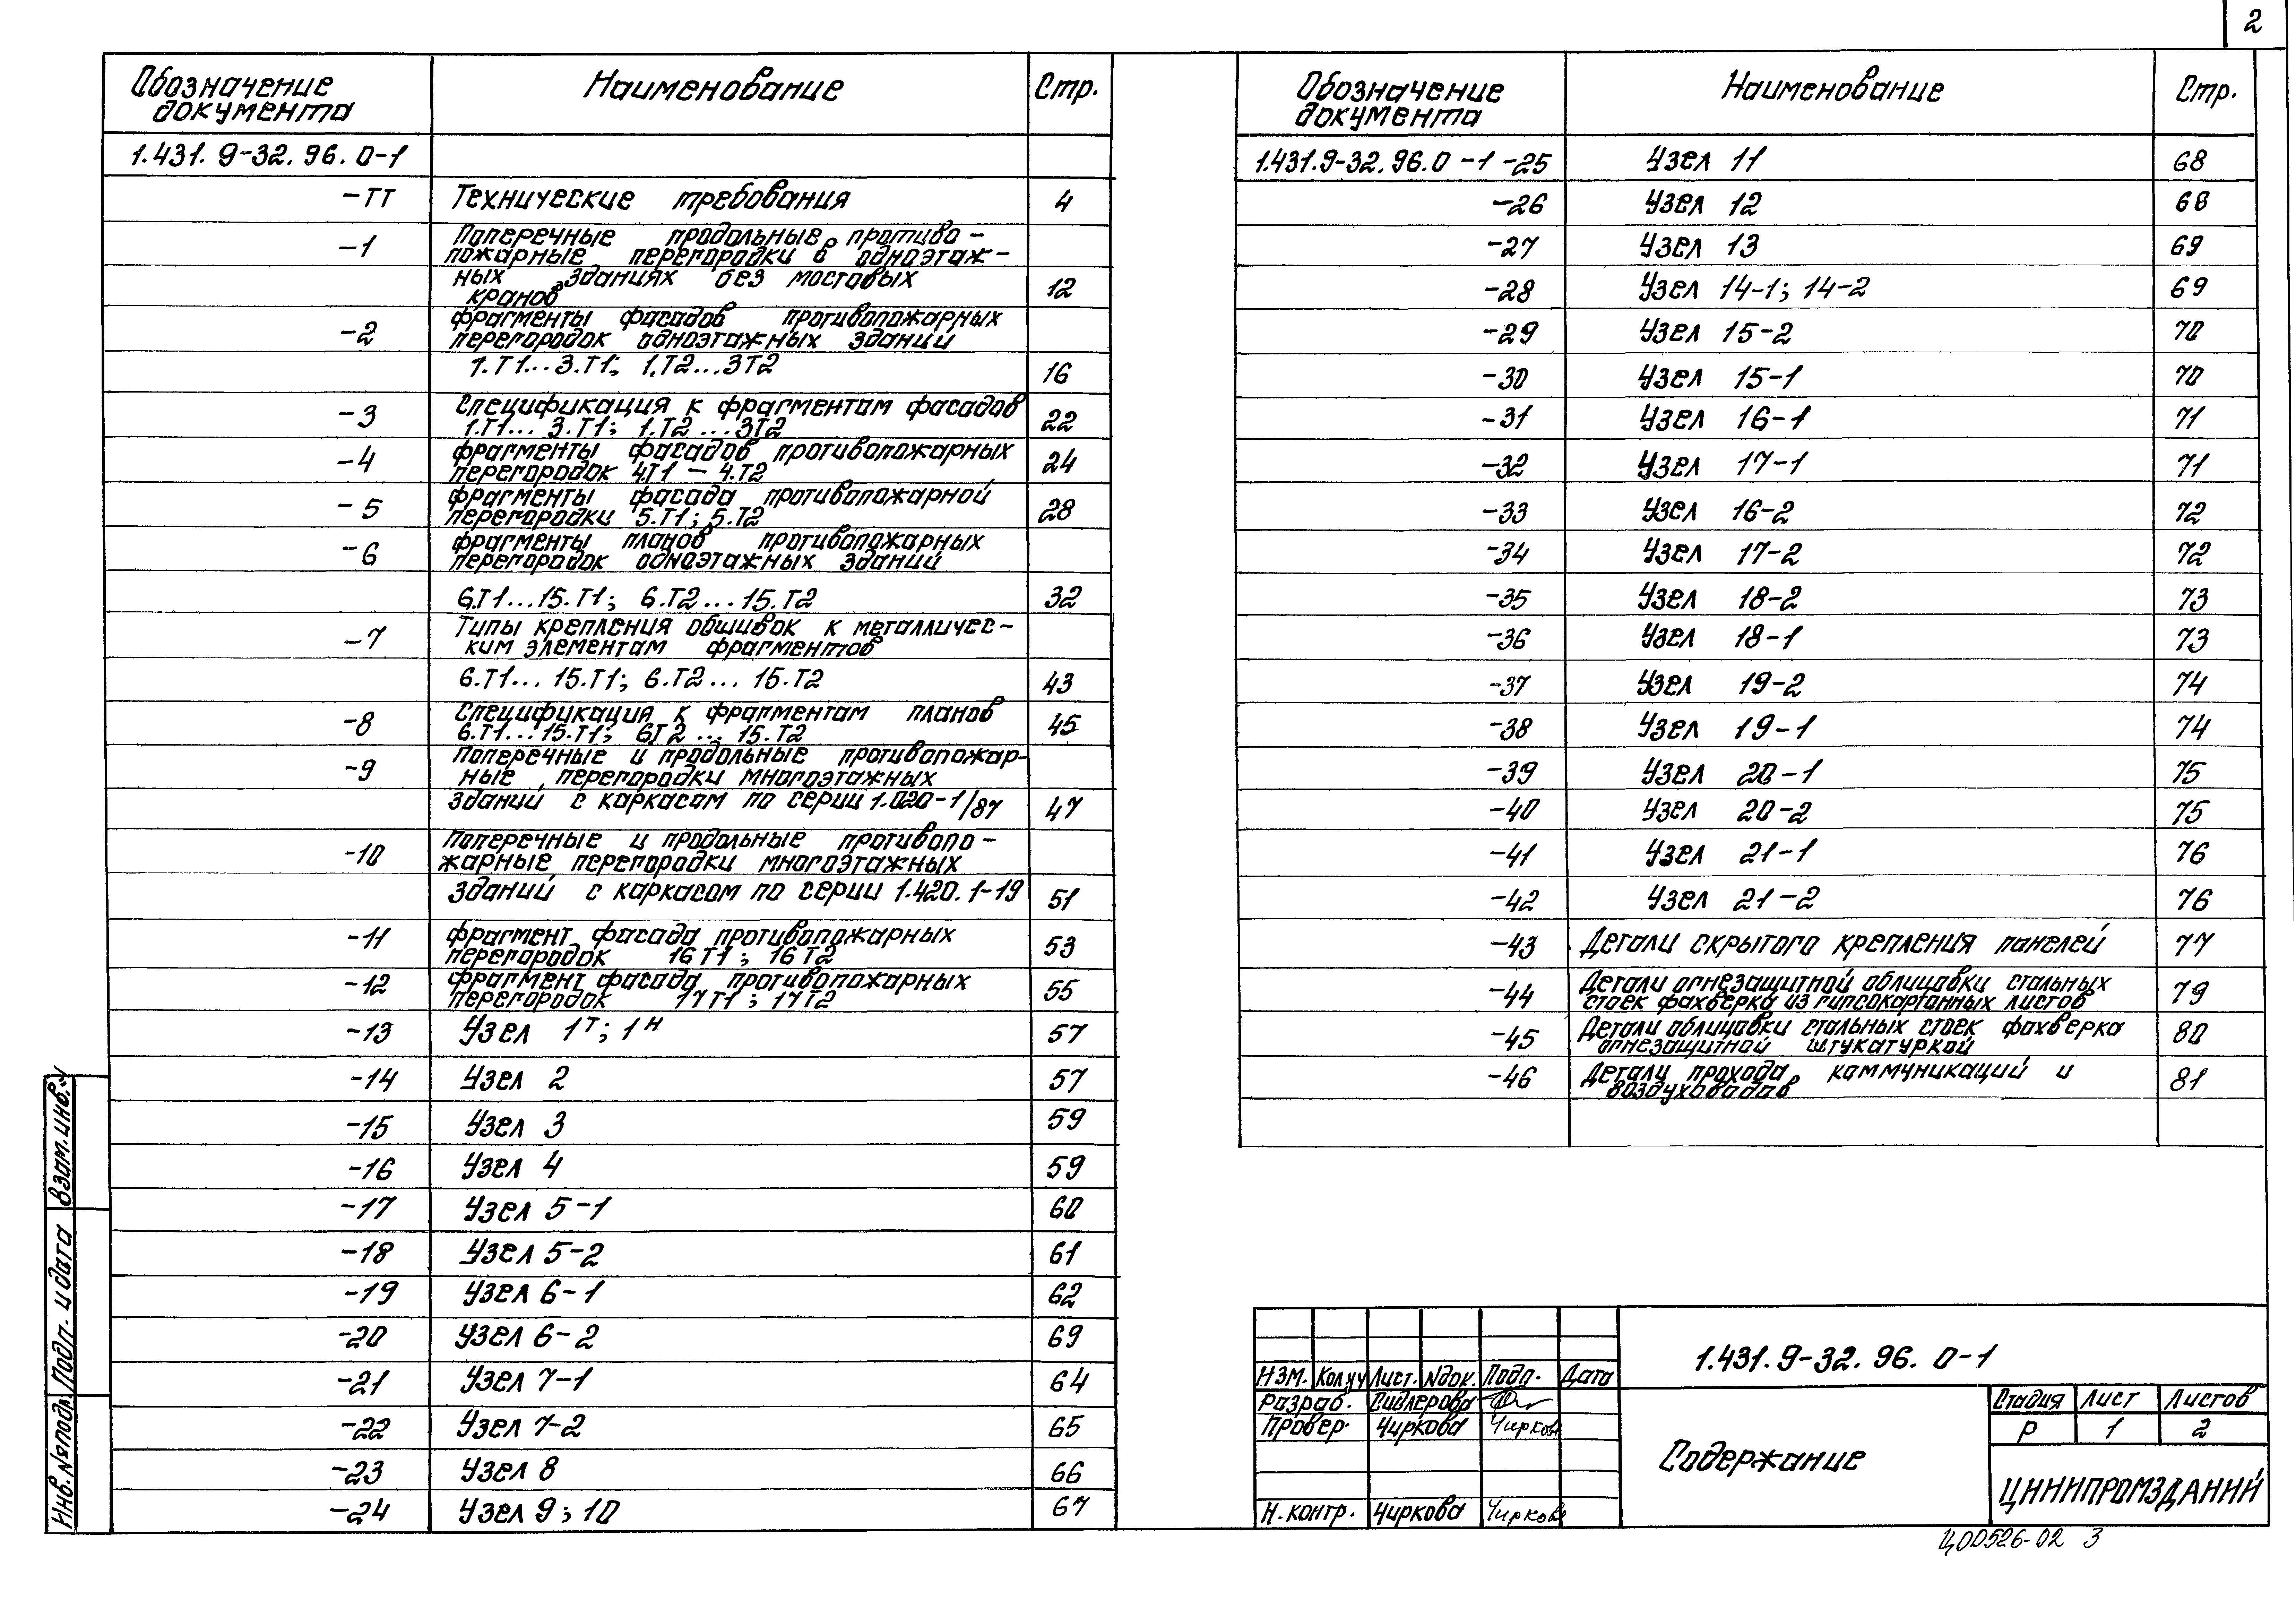 2
Обозначение документа Наименование Стр.
1.431.9-32.96.0-1
-ТТ Технические требования 4
-1 Поперечные продольные противо-
пожарные перегородки в одноэтаж-
ных зданиях без мостовых
кранов 12
-2 фрагменты фасадов противопожарных
перегородок одноэтажных зданий
1.Т1...3.Т1; 1.Т2...3Т2 16
-3 Спецификация к фрагментам фасадов
1.Т1...3.Т1; 1.Т2...3Т2 22
-4 фрагменты фасадов противопожарных
перегородок 4.Т1 – 4.Т2 24
-5 фрагменты фасада противопожарной
перегородки 5.Т1; 5.Т2 28
-6 фрагменты планов противопожарных
перегородок одноэтажных зданий
6.Т1...15.Т1; 6.Т2...15.Т2 32
-7 Типы крепления обшивок к металличес-
ким элементам фрагментов
6.Т1...15.Т1; 6.Т2...15.Т2 43
-8 Спецификация к фрагментам планов
6.Т1...15.Т1; 6Т2...15.Т2 45
-9 Поперечные и продольные противопожар-
ные перегородки многоэтажных
зданий с каркасом по серии 1.020-1/87 47
-10 Поперечные и продольные противопо-
жарные перегородки многоэтажных
зданий с каркасом по серии 1.420.1-19 51
-11 фрагмент фасада противопожарных
перегородок 16Т1; 16Т2 53
-12 фрагмент фасада противопожарных
перегородок 17Т1; 17Т2 55
-13 Узел 1Т; 1Н 57
-14 Узел 2 57
-15 Узел 3 59
-16 Узел 4 59
-17 Узел 5-1 60
-18 Узел 5-2 61
-19 Узел 6-1 62
-20 Узел 6-2 69
-21 Узел 7-1 64
-22 Узел 7-2 65
-23 Узел 8 66
-24 Узел 9; 10 67
Обозначение документа Наименование Стр.
1.431.9-32.96.0-1 -25 Узел 11 68
-26 Узел 12 68
-27 Узел 13 69
-28 Узел 14-1; 14-2 69
-29 Узел 15-2 70
-30 Узел 15-1 70
-31 Узел 16-1 71
-32 Узел 17-1 71
-33 Узел 16-2 72
-34 Узел 17-2 72
-35 Узел 18-2 73
-36 Узел 18-1 73
-37 Узел 19-2 74
-38 Узел 19-1 74
-39 Узел 20-1 75
-40 Узел 20-2 75
-41 Узел 21-1 76
-42 Узел 21-2 76
-43 Детали скрытого крепления панелей 77
-44 Детали огнезащитной облицовки стальных
стоек фахверка из гипсокартонных листов 79
-45 Детали облицовки стальных стоек фахверка
огнезащитной штукатуркой 80
-46 Детали прохода коммуникаций и
воздуховодов 81
Взам.инв.№
Подп. и дата
Инв. №подл.
Изм. Кол.уч Лист. №док. Подп. Дата
Разраб. Сидлерова
Провер. Чиркова Чиркова
Н.контр. Чиркова Чиркова
1.431.9-32.96.0-1
Содержание
Стадия Лист Листов
Р 1 2
ЦНИИПРОМЗДАНИЙ
Ц00526-02 3